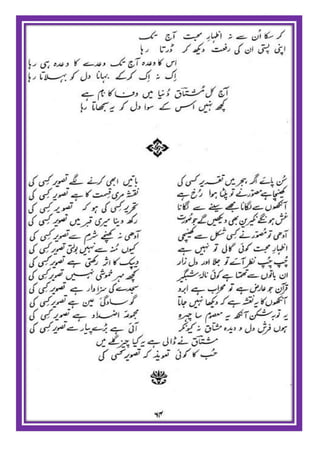 کر سکا اُن سے نہ اظہارِ محبت آج تک
اپنی پستی اُن کی رفعت دیکھ کر ڈرتا رہا
اس کا وعدہ آج تک وعدے کا وعدہ ہی رہا
اِک نہ اِک کرکے بہانا دل کو بہلاتا رہا
آج کل مُشتاق دُنیا میں وفا کا نام ہے
کچھ نہیں اس کے سوا دل کو یہ سمجھاتا رہا
سُن پائے اگر ہجر میں تقریر کسی کی
باتیں ابھی کرنے لگے تصویر کسی کی
کھینچا ہے مصور نے تو پلٹا ہوا رُخ ہے
نقشہ مری قسمت کا ہے تصویر کسی کی
آنکھوں سے لگانا مجھے سینے سے لگانا
تحریر کسی کی ہو کہ تصویر کسی کی
خوش ہونگے نکیرین بھی دیکھیں گے جو صورت
رکھ دینا میری قبر میں تصویر کسی کی
آدھی تو مصور نے کسی شکل سے کھینچی
آدھی نہ کھینچے شرم سے تصویر کسی کی
اظہارِ محبت کوئی گالی تو نہیں ہے
کیوں مُنہ سے نہیں بولتی تصویر کسی کی
چُپ چُپ نظر آئے تو جلا اور دلِ زار
دیپک کا اثر رکھتی ہے تصویر کسی کی
ان باتوں سے تھمتا ہے کوئی نالۂ شبگیر
کچھ مہرِ خموشی نہیں تصویر کسی کی
قرآن جو عارض ہے تو محراب ہے ابرو
سجدے کی سزاوار ہے تصویر کسی کی
آنکھوں کا یہ نقشہ ہے کہ دیکھا نہیں جاتا
گو سادگی میں ہے تصویر کسی کی
یہ توبہ شکن آنکھ یہ معصوم سا چہرہ
مجموعۂ اضداد ہے تصویر کسی کی
ہوں فرش دل و دیدہ مشتاق نہ کیونکر
آئی ہے بڑے پیار سے تصویر کسی کی
مشتاق نے ڈالی ہے یہ کیا چیز گلے میں
حُب کا کوئی تعویذ کہ تصویر کسی کی
۶۴